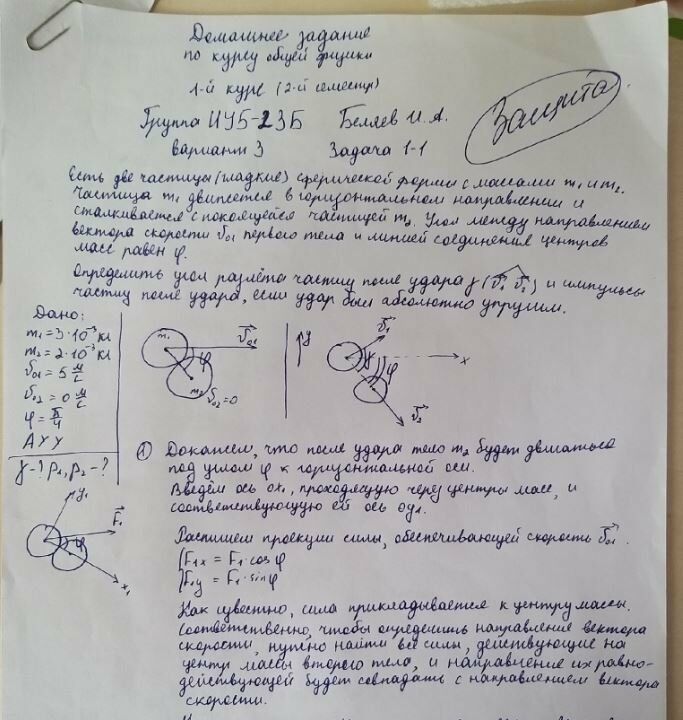 Домашнее задание
по курсу общей физики
1-й курс (2-й семестр)
Группа ИУ5-23Б Беляев И. А.
Вариант 3 Задача 1-1
Защита
Есть две частицы (гладкие) сферической формы с массами m₁ и m₂.
Частица m₁ движется в горизонтальном направлении и
сталкивается с покоящейся частицей m₂. Угол между направлением
вектора скорости v₀₁ первого тела и линией соединения центров
масс равен φ.
Определить угол разлёта частиц после удара γ (v₂ v₁) и импульсы
частиц после удара, если удар был абсолютно упругим.
Дано:
m₁ = 3·10⁻³ кг
m₂ = 2·10⁻³ кг
v₀₁ = 5 м/с
v₀₂ = 0 м/с
φ = π/4
АУУ
γ-? p₁, p₂-?
m₁ φ v₀₁
m₂ v₀₂=0
y v₁
γ φ x
v₂
y₁
F₁
x₁
① Докажем, что после удара тело m₂ будет двигаться
под углом φ к горизонтальной оси.
Введём ось ox₁, проходящую через центры масс, и
соответствующую ей ось oy₁.
Распишем проекции силы, обеспечивающей скорость v₀₁.
F₁x = F₁·cosφ
F₁y = F₁·sinφ
Как известно, сила прикладывается к центру массы.
Соответственно, чтобы определить направление вектора
скорости, нужно найти все силы, действующие на
центр массы второго тела, и направление их равно-
действующей будет совпадать с направлением вектора
скорости.